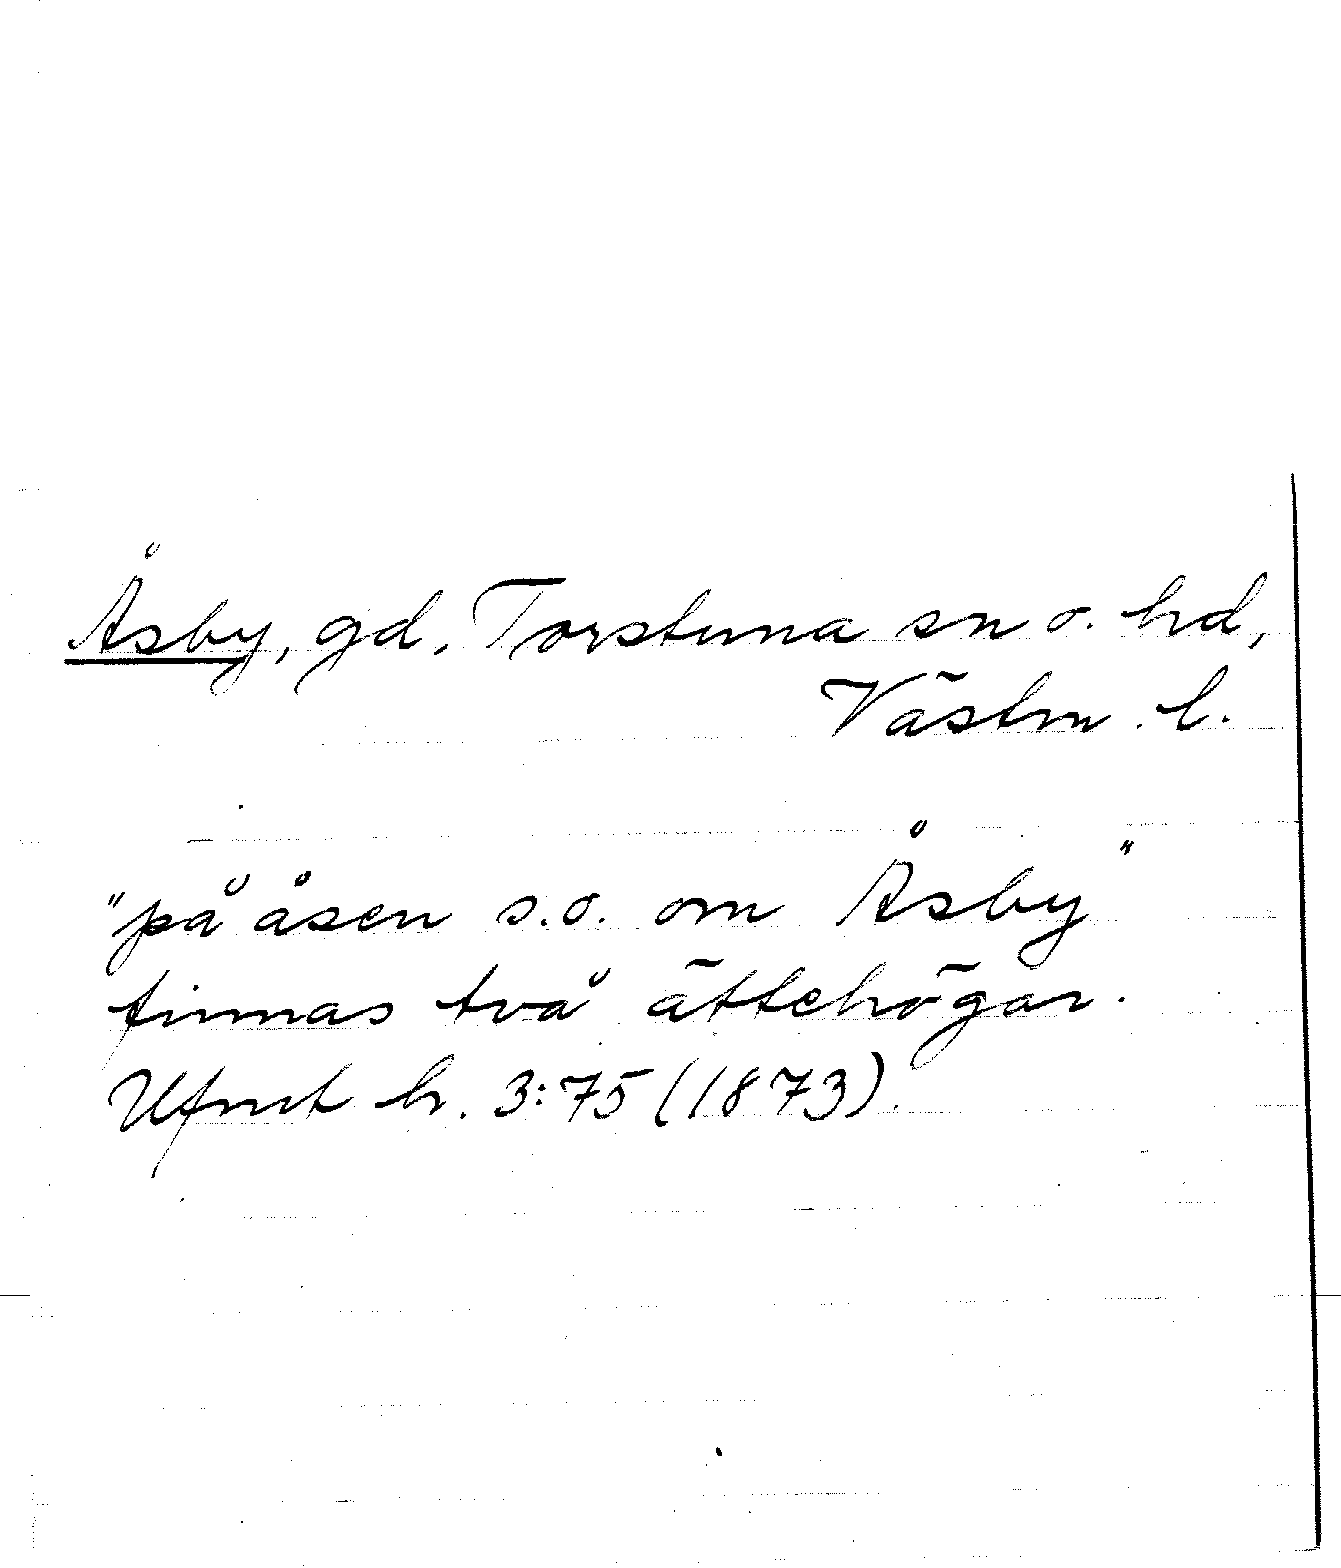 Åsby, gd. Torstuna sn o. hd,
Västm. l.
"på åsen s.o. om Åsby"
finnas två ättehögar.
Ufmt h. 3:75 (1873).